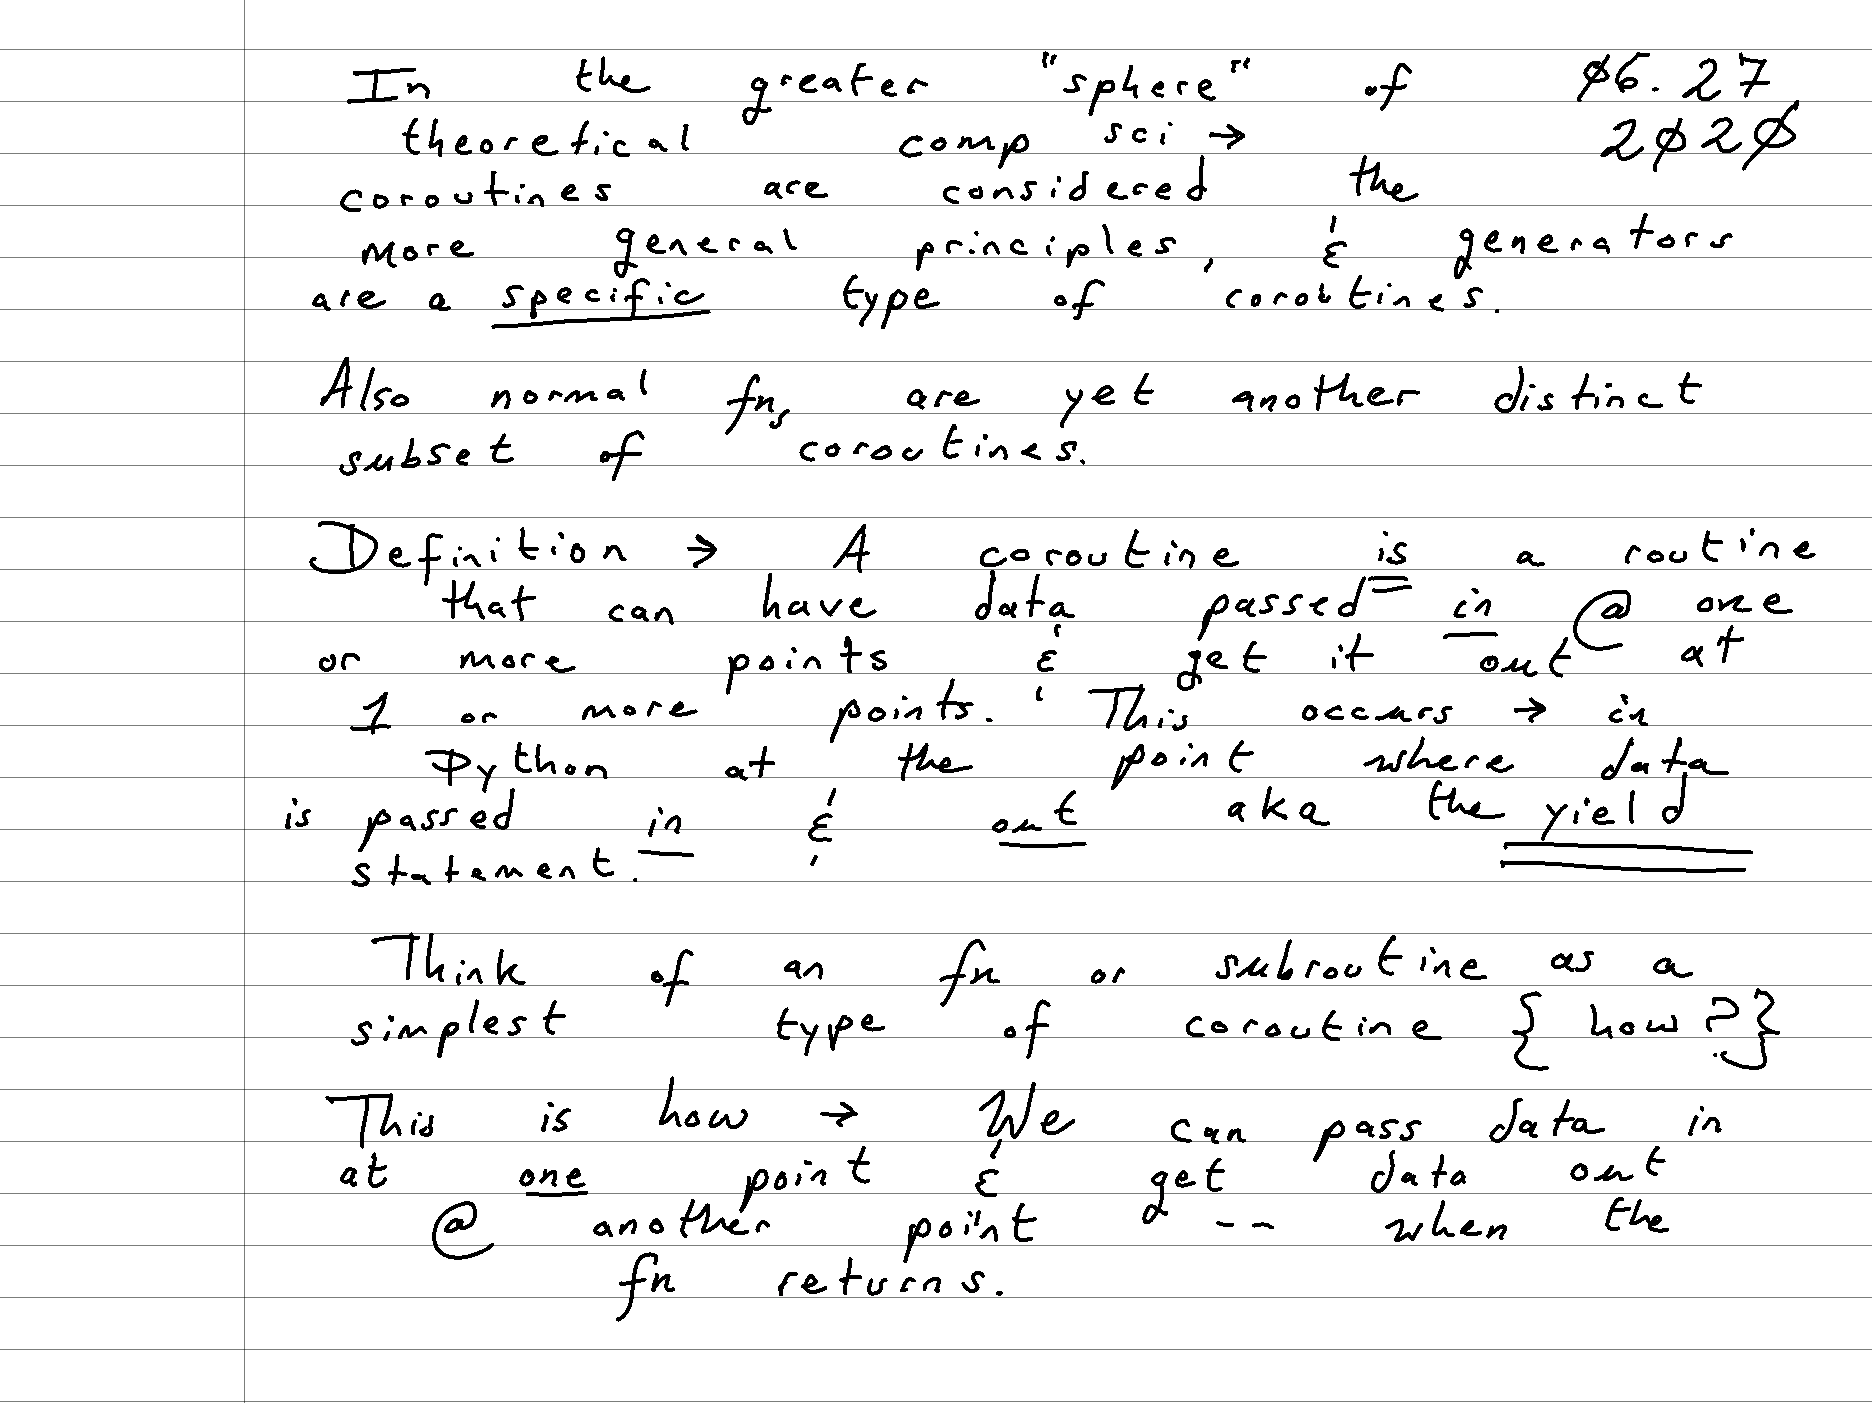 In the greater "sphere" of 06.27
theoretical comp sci → 2020
coroutines are considered the
more general principles, & generators
are a specific type of coroutines.
Also normal fns are yet another distinct
subset of coroutines.
Definition → A coroutine is a routine
that can have data passed in @ one
or more points & get it out at
1 or more points. This occurs → in
Python at the point where data
is passed in & out aka the yield
statement.
Think of an fn or subroutine as a
simplest type of coroutine { how? }
This is how → We can pass data in
at one point & get data out
@ another point -- when the
fn returns.